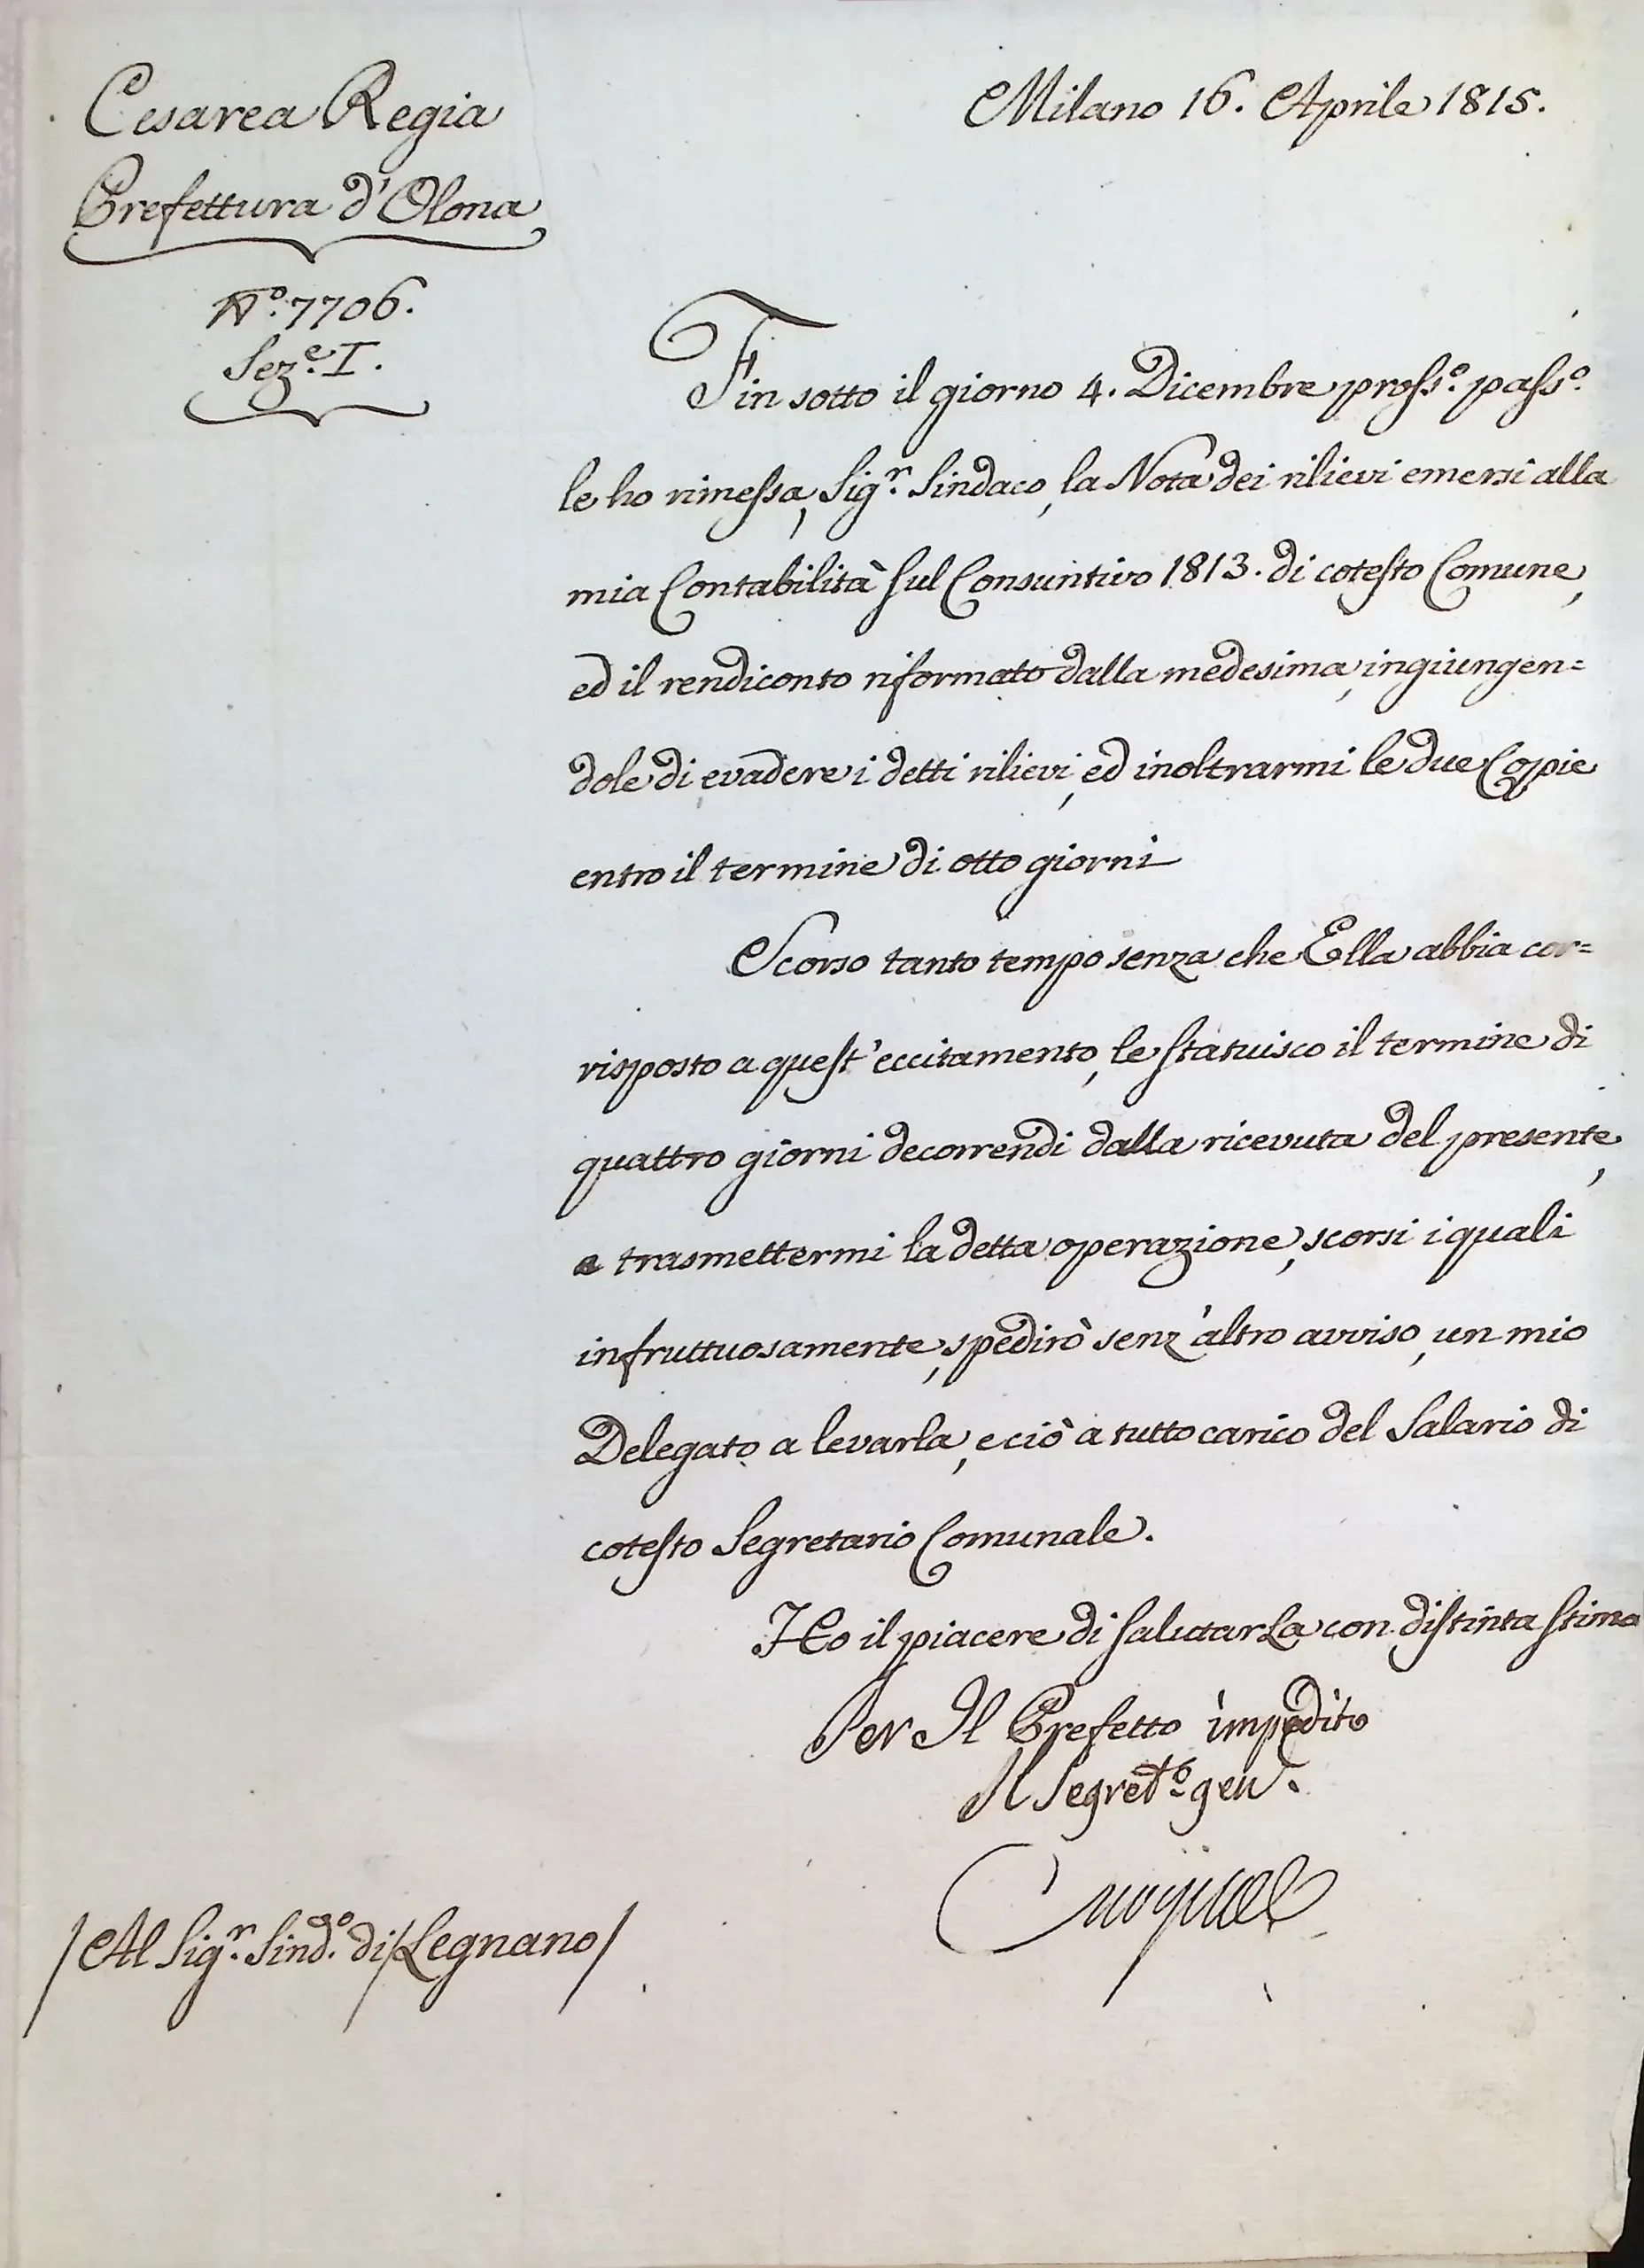 Cesarea Regia
Prefettura d'Olona
N.º 7706.
Sez.e I.
Milano 16. Aprile 1815.
Fin sotto il giorno 4. Dicembre pross.º pass.º
le ho rimessa, Sig.r Sindaco, la Nota dei rilievi emersi alla
mia Contabilità sul Consuntivo 1813. di cotesto Comune,
ed il rendiconto riformato dalla medesima, ingiungen=
dole di evadere i detti rilievi, ed inoltrarmi le due Copie
entro il termine di otto giorni
Scorso tanto tempo senza che Ella abbia cor=
risposto a quest'eccitamento, le statuisco il termine di
quattro giorni decorrendi dalla ricevuta del presente,
a trasmettermi la detta operazione, scorsi i quali
infruttuosamente, spedirò senz'altro avviso, un mio
Delegato a levarla, e ciò a tutto carico del Salario di
cotesto Segretario Comunale.
Ho il piacere di salutarLa con distinta stima
Per Il Prefetto impedito
Il Segret.º gen.
/Al Sig.r Sind.co di/Legnano/